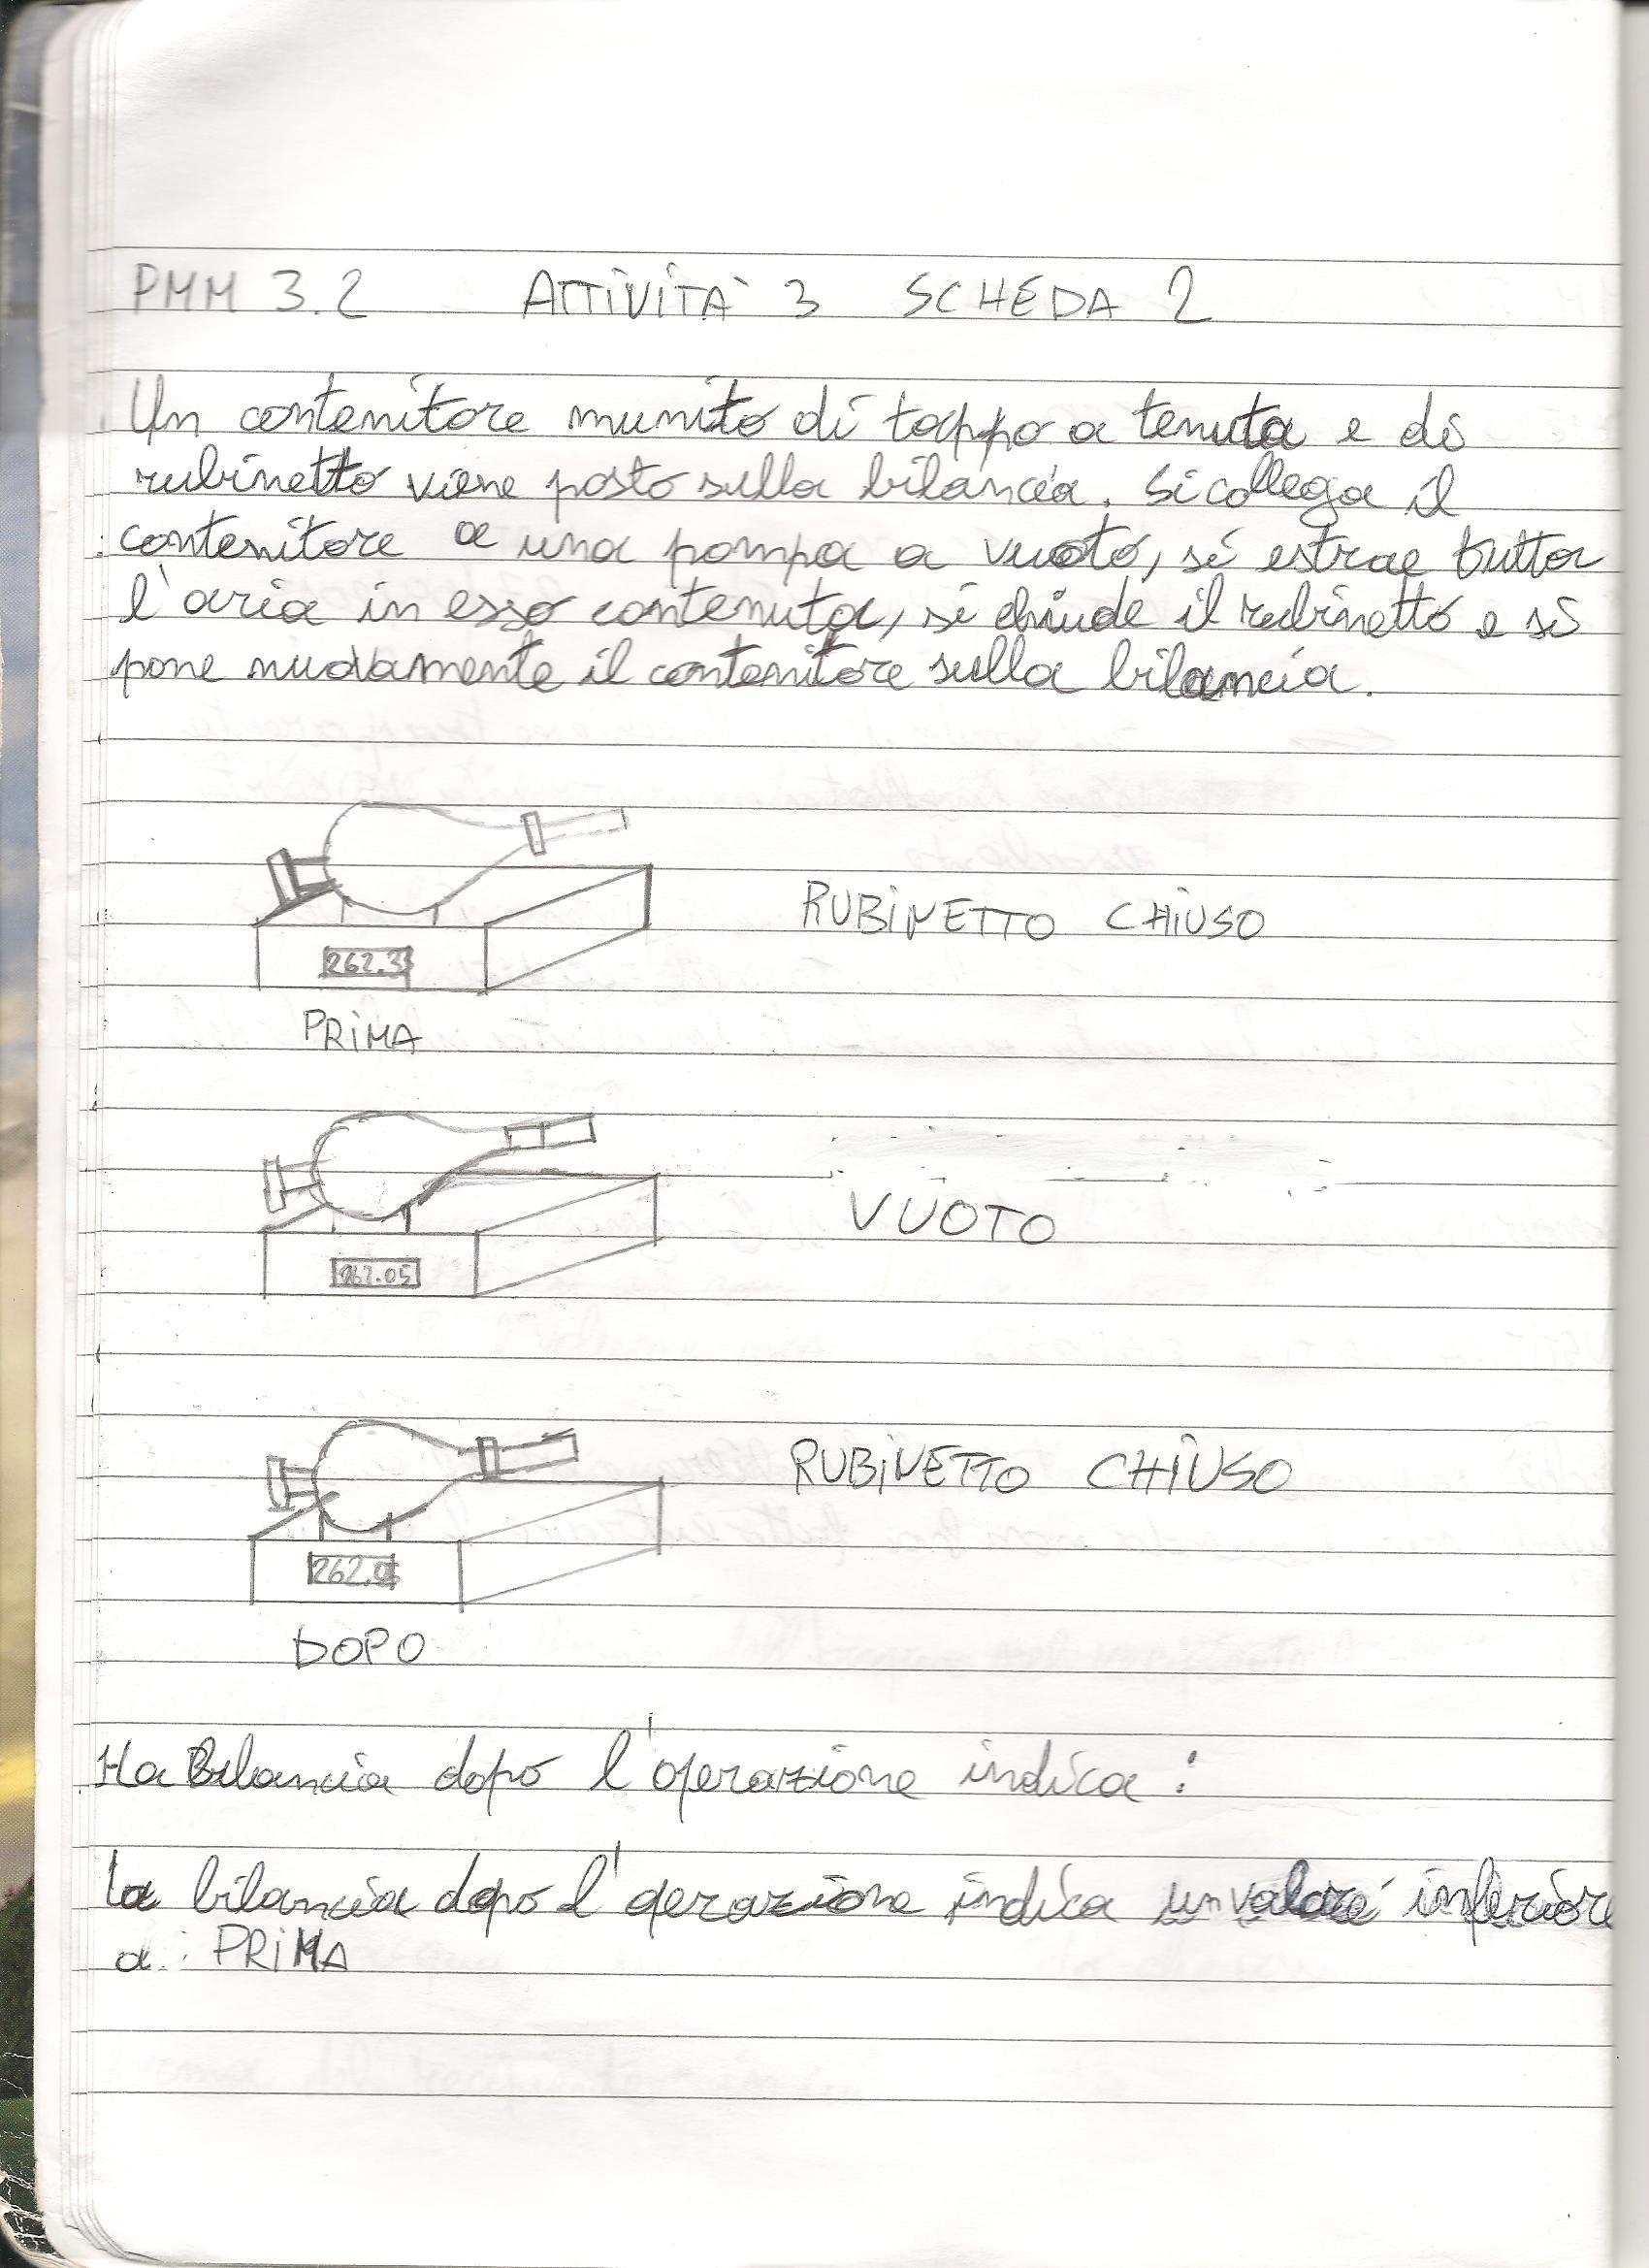 PMM 3.2 ATTIVITA' 3 SCHEDA 2
Un contenitore munito di tappo a tenuta e di
rubinetto viene posto sulla bilancia. Si collega il
contenitore a una pompa a vuoto, si estrae tutta
l'aria in esso contenuta, si chiude il rubinetto e si
pone nuovamente il contenitore sulla bilancia.
RUBINETTO CHIUSO
262.3
PRIMA
VUOTO
262.05
RUBINETTO CHIUSO
DOPO
La Bilancia dopo l'operazione indica:
La bilancia dopo l'operazione indica un valore inferiore
a: PRIMA